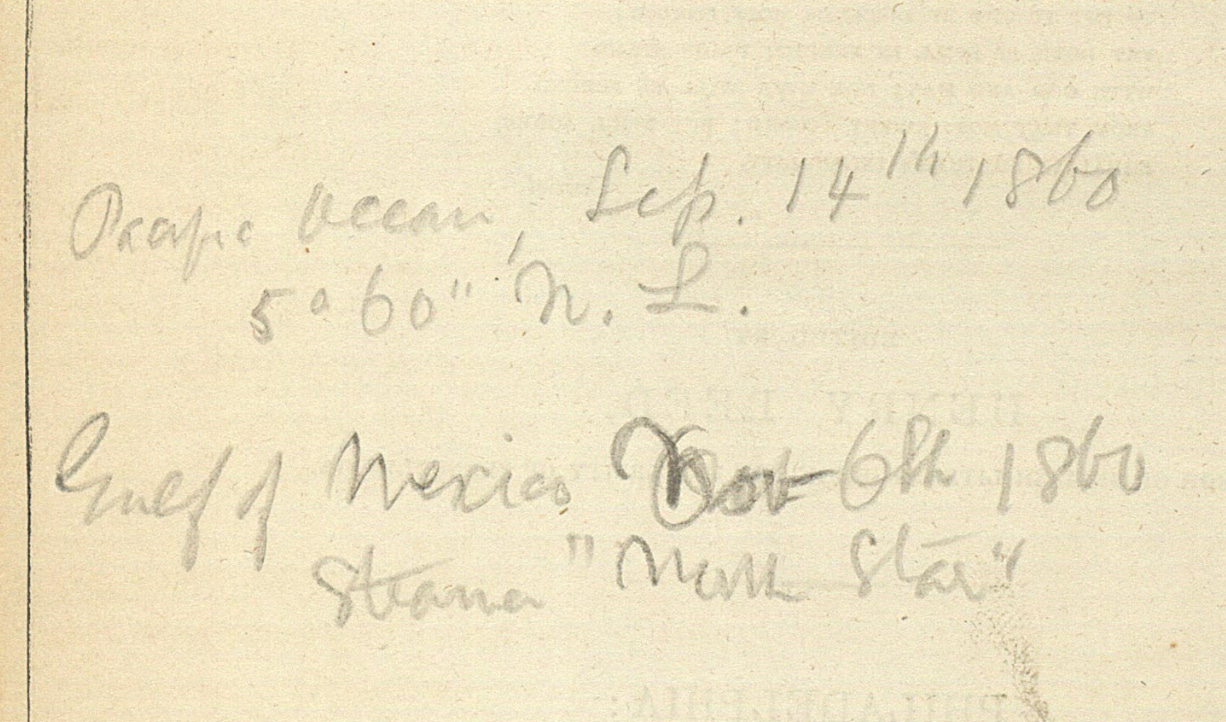 Pacific Ocean, Sep. 14th 1860
5° 60" N. L.
Gulf of Mexico Nov 6th 1860
Steamer "North Star"